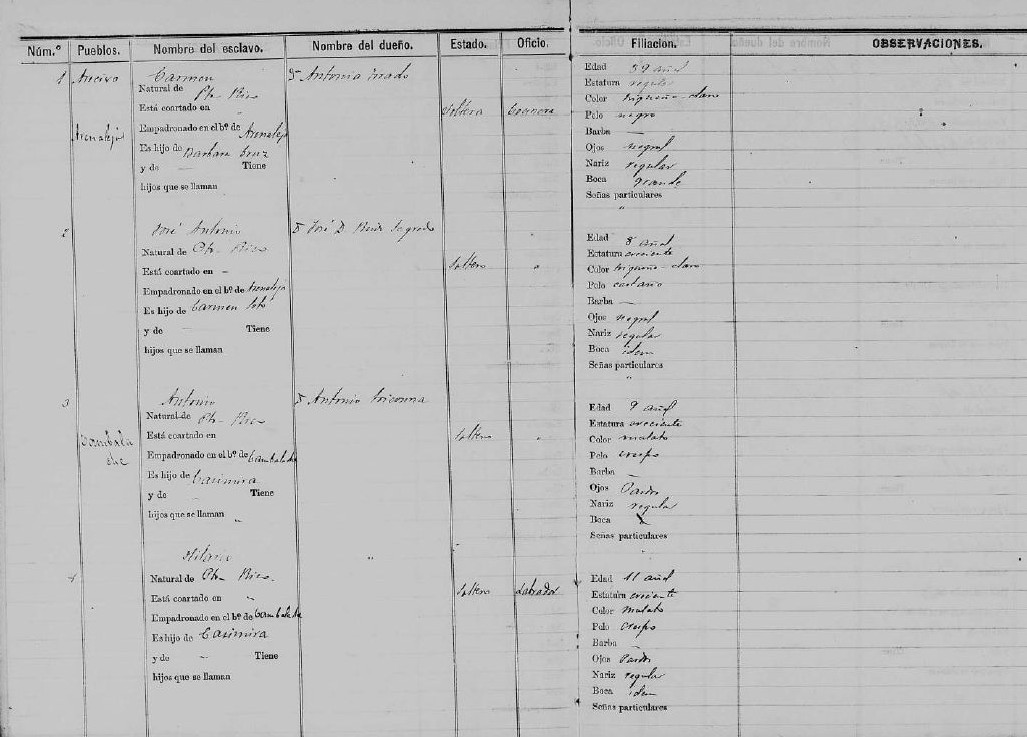 Núm.º Pueblos. Nombre del esclavo. Nombre del dueño. Estado. Oficio. Filiacion. OBSERVACIONES.
1 Carmen Dª Antonia
Natural de Pto Rico
Está coartado en
Soltera
Arenalejo
Empadronado en el bº de Arenalejo
Es hijo de Barbara Cruz
y de — Tiene
hijos que se llaman
Edad 39 años
Estatura regular
Color trigueño-claro
Pelo negro
Barba —
Ojos negros
Nariz regular
Boca grande
Señas particulares
"
2 José Antonio D José D
Natural de Pto Rico
Está coartado en —
Soltero "
Empadronado en el bº de Arenalejo
Es hijo de Carmen
y de — Tiene
hijos que se llaman
Edad 8 años
Estatura creciente
Color trigueño-claro
Pelo castaño
Barba —
Ojos negros
Nariz regular
Boca idem
Señas particulares
"
3 Antonio D Antonio
Natural de Pto Rico
Está coartado en
Soltero "
Cambala
che
Empadronado en el bº de Cambalache
Es hijo de Casimira
y de — Tiene
hijos que se llaman "
Edad 9 años
Estatura creciente
Color mulato
Pelo crespo
Barba —
Ojos Pardos
Nariz regular
Boca
Señas particulares
"
4 Hilario "
Natural de Pto Rico
Está coartado en "
Soltero Labrador
Empadronado en el bº de Cambalache
Es hijo de Casimira
y de — Tiene
hijos que se llaman
Edad 11 años
Estatura creciente
Color mulato
Pelo crespo
Barba —
Ojos Pardos
Nariz regular
Boca idem
Señas particulares